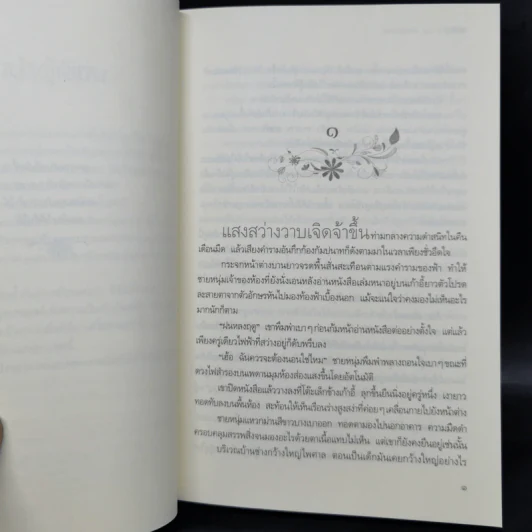 ๑
แสงสว่างวาบเจิดจ้าขึ้น ท่ามกลางความดำสนิทในคืน
เดือนมืด แล้วเสียงคำรามอันกึกก้องกัมปนาทก็ดังตามมาในเวลาเพียงชั่วอึดใจ
กระจกหน้าต่างบานยาวจรดพื้นสั่นสะเทือนตามแรงคำรามของฟ้า ทำให้
ชายหนุ่มเจ้าของห้องที่ยังนั่งเอนหลังอ่านหนังสือเล่มหนาอยู่บนเก้าอี้ยาวตัวโปรด
ละสายตาจากตัวอักษรหันไปมองท้องฟ้าเบื้องนอก แม้จะแน่ใจว่าคงมองไม่เห็นอะไร
มากนักก็ตาม
"ฝนหลงฤดู" เขาพึมพำเบาๆ ก่อนก้มหน้าอ่านหนังสือต่ออย่างตั้งใจ แต่แล้ว
เพียงครู่เดียวไฟฟ้าที่สว่างอยู่ก็ดับพรึบลง
"เฮ้อ ฉันควรจะต้องนอนใช่ไหม" ชายหนุ่มพึมพำพลางถอนใจเบาๆ ขณะที่
ดวงไฟสำรองบนเพดานมุมห้องส่องแสงขึ้นโดยอัตโนมัติ
เขาปิดหนังสือแล้ววางลงที่โต๊ะเล็กข้างเก้าอี้ ลุกขึ้นยืนนิ่งอยู่ครู่หนึ่ง เงายาว
ทอดทับลงบนพื้นห้อง สะท้อนให้เห็นเรือนร่างสูงสง่าที่ค่อยๆ เคลื่อนกายไปยังหน้าต่าง
ชายหนุ่มแหวกม่านสีขาวบางเบาออก ทอดตามองไปนอกอาคาร ความมืดดำ
ครอบคลุมสรรพสิ่งจนมองอะไรด้วยตาเนื้อแทบไม่เห็น แต่เขาก็ยังคงยืนอยู่เช่นนั้น
บริเวณบ้านช่างกว้างใหญ่ไพศาล ตอนเป็นเด็กมันเคยกว้างใหญ่อย่างไร